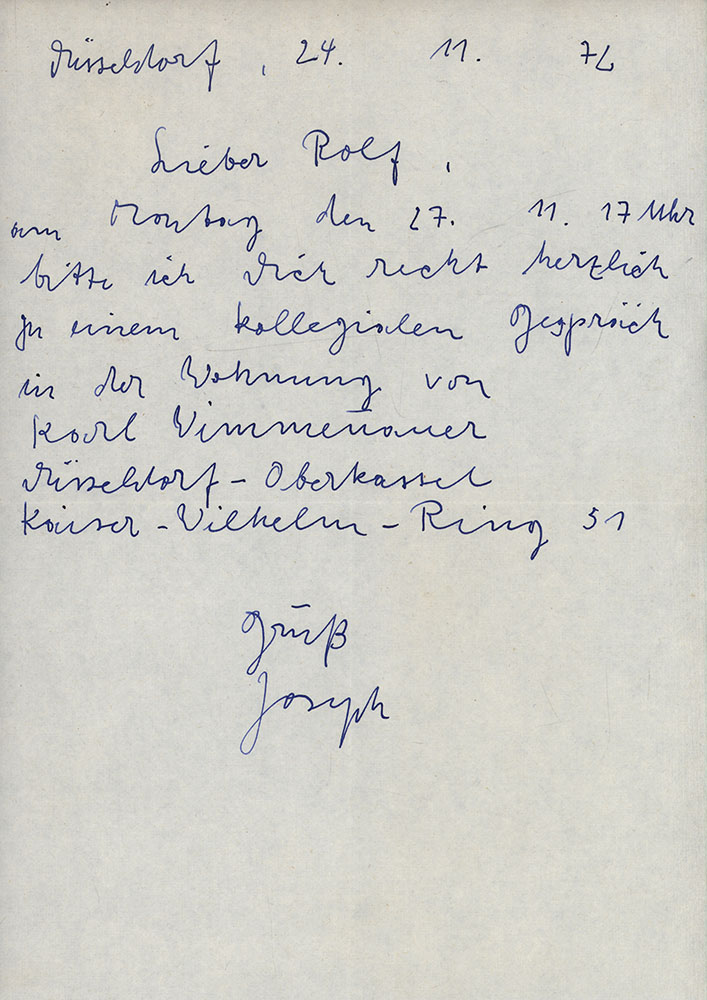 Düsseldorf, 24. 11. 72
Lieber Rolf,
am Montag den 27. 11. 17 Uhr
bitte ich Dich recht herzlich
zu einem kollegialen Gespräch
in der Wohnung von
Karl Wimmenauer
Düsseldorf-Oberkassel
Kaiser-Wilhelm-Ring 51
Gruß
Joseph